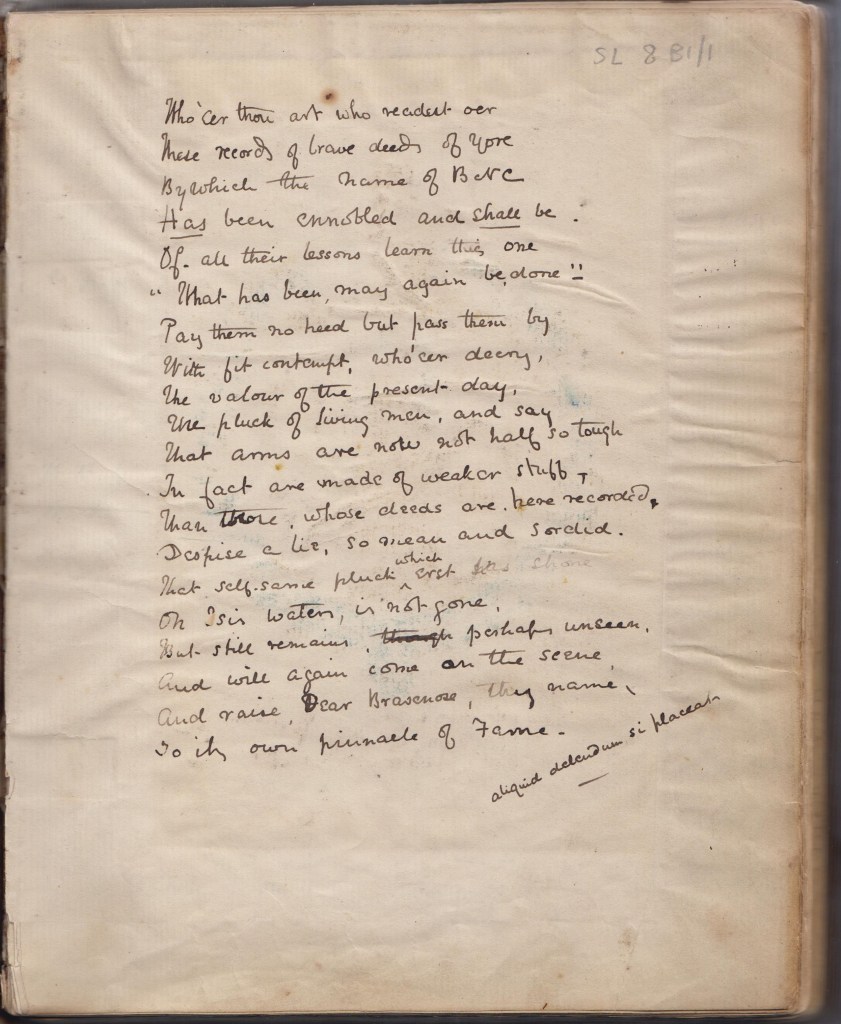 SL 8 B1/1
Who'er thou art who readest oer
These records of brave deeds of yore
By which the name of BNC
Has been ennobled and shall be.
Of all their lessons learn this one
"What has been, may again be done"!
Pay them no heed but pass them by
With fit contempt, who'er decry,
The valour of the present day,
The pluck of living men, and say
That arms are now not half so tough
In fact are made of weaker stuff,
Than those, whose deeds are here recorded,
Despise a lie, so mean and sordid.
That self-same pluck which erst has shone
On Isis waters, is not gone,
But still remains, though perhaps unseen,
And will again come on the scene,
And raise, Dear Brasenose, thy name,
To its own pinnacle of Fame.
aliquid delendum si placeat